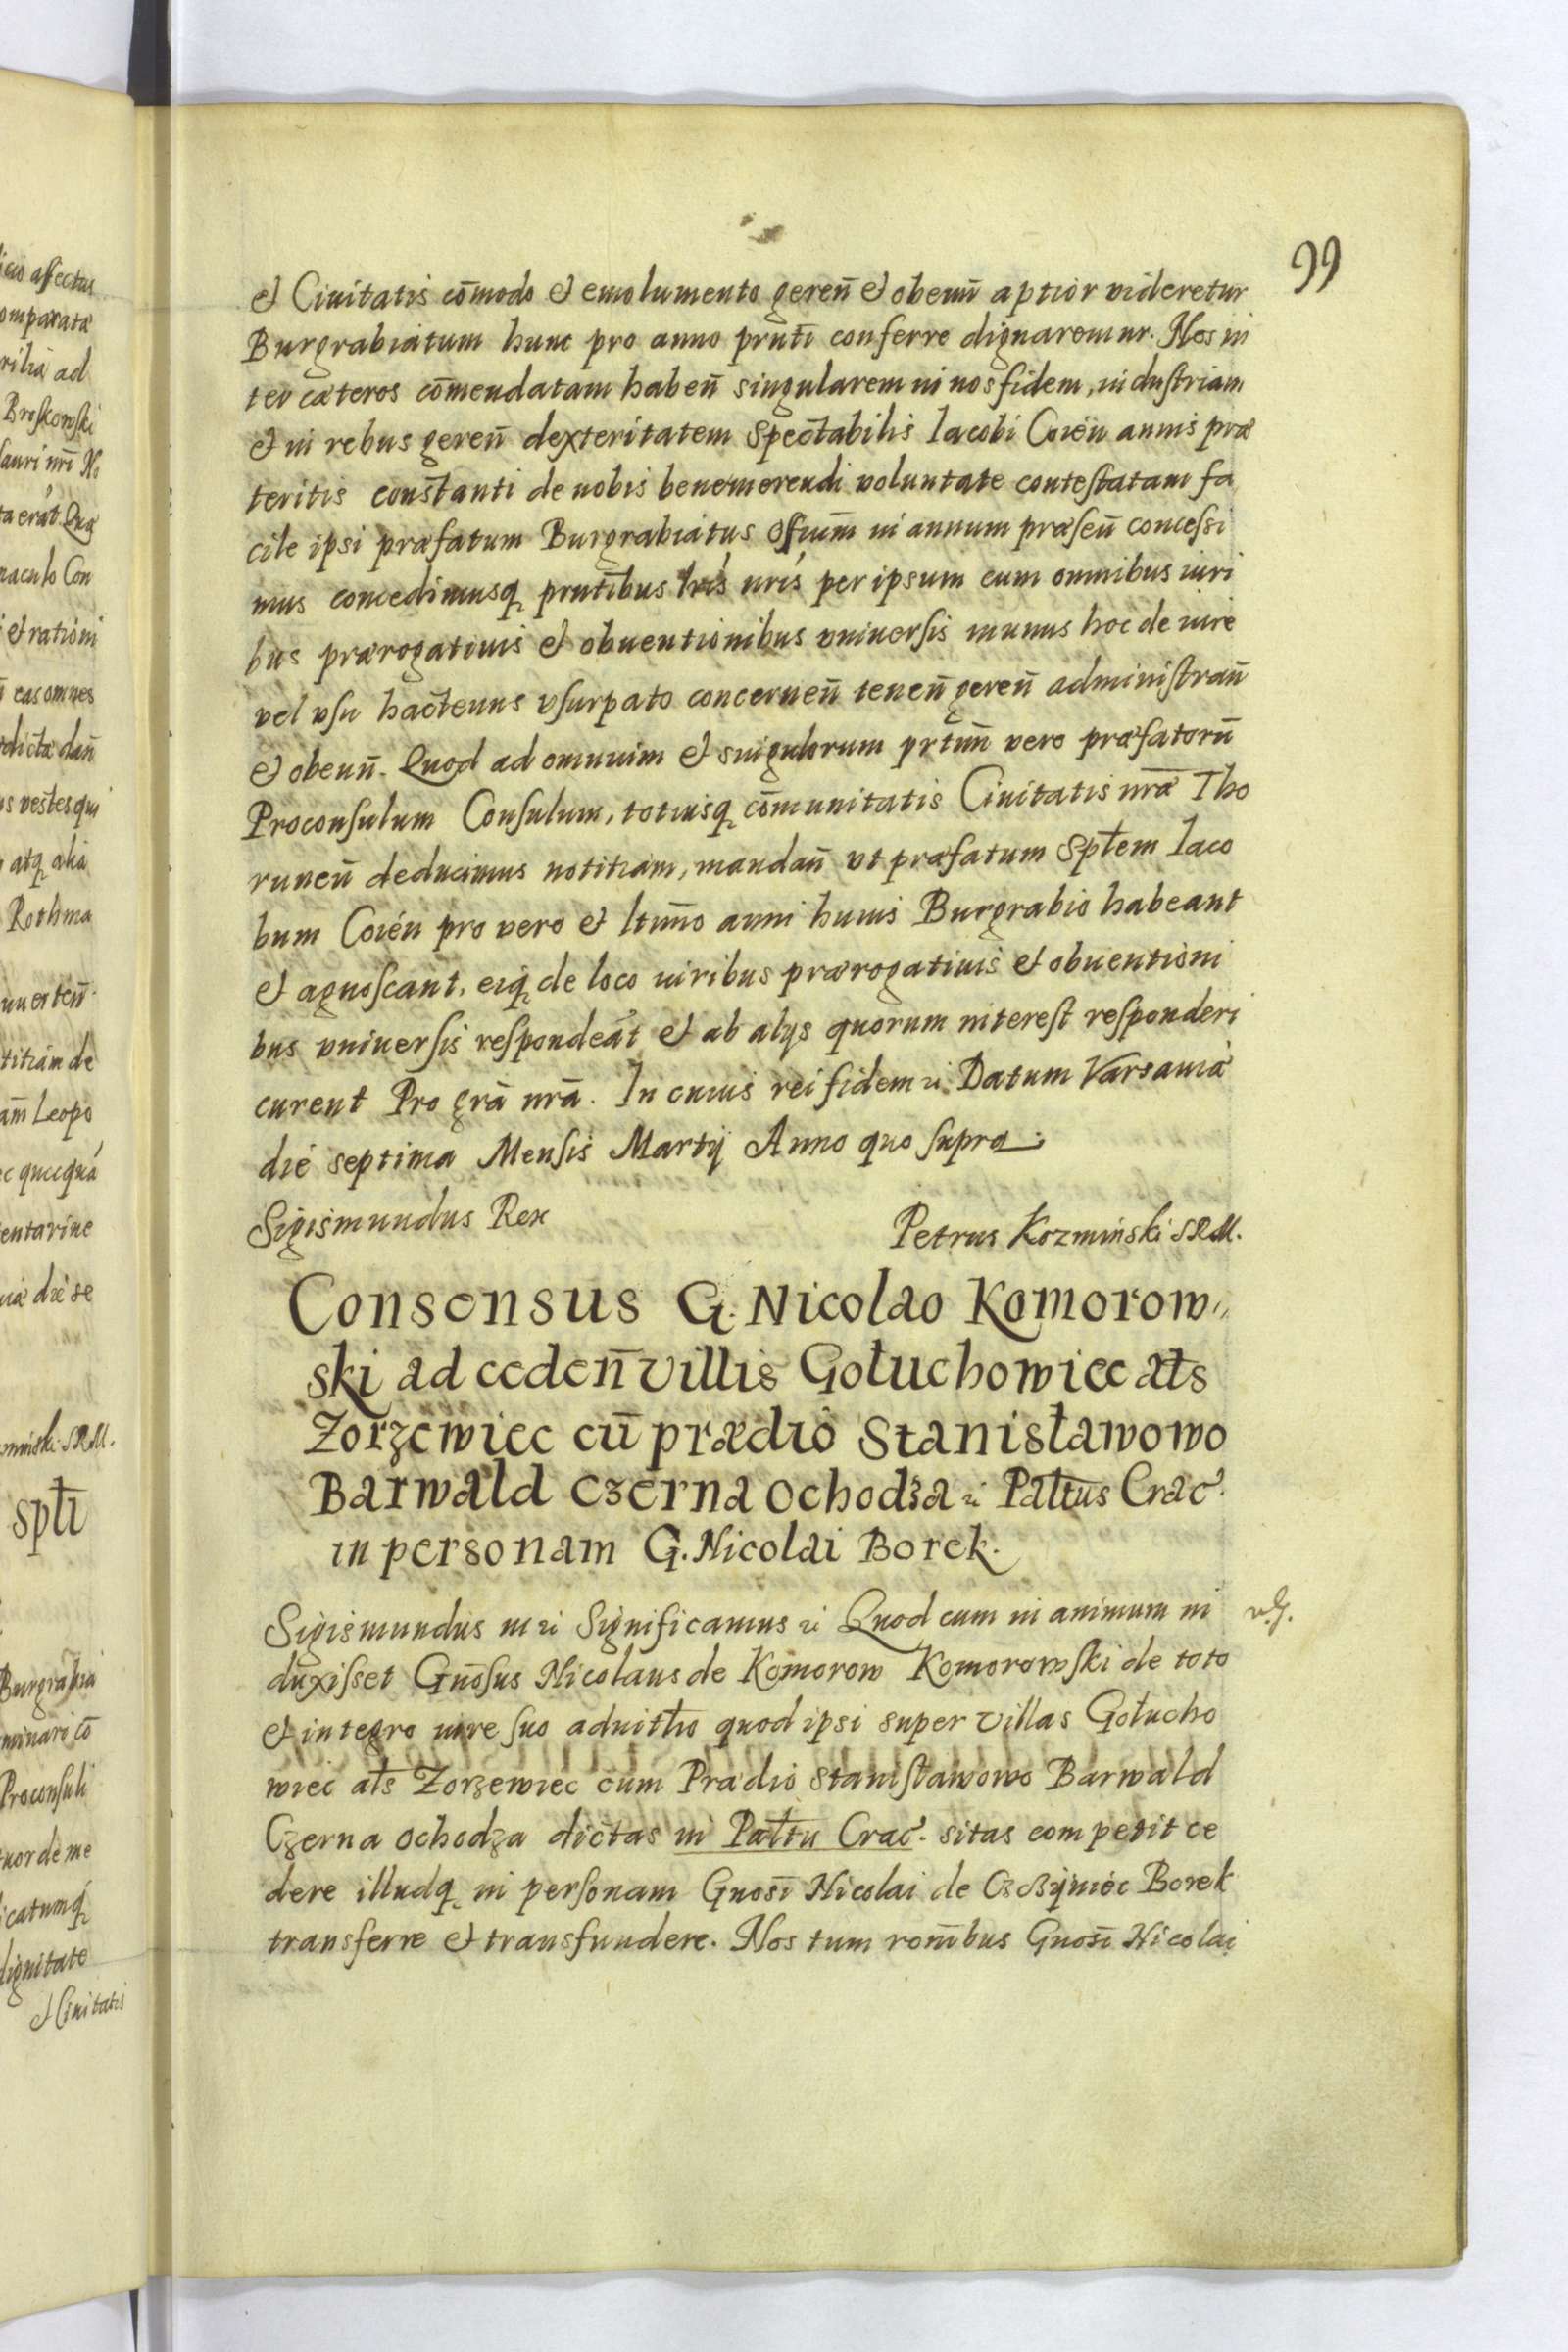 99
et Ciuitatis cōmodo et emolumento gereñ et obeuñ aptior videretur
Burgrabiatum hunc pro anno prnti conferre dignaremur. Nos in
ter cæteros cōmendatam habeñ singularem in nos fidem, industriam
et in rebus gereñ dexteritatem Spectabilis Iacobi Coieu annis præ
teritis constanti de nobis benemerendi voluntate contestatam fa
cile ipsi præfatum Burgrabiatus offium in annum præseñ concessi
mus concedimusq prntibus lris nris per ipsum cum omnibus iuri
bus prærogatiuis et obuentionibus vniuersis munus hoc de iure
vel vsu hactenus vsurpato concerneñ teneñ gereñ administrañ
et obeuñ. Quod ad omnium et singulorum prtim vero præfatorū
Proconsulum Consulum, totiusq cōmunitatis Ciuitatis nræ Tho
runeñ deducimus notitiam, mandañ vt præfatum Sptem Iaco
bum Coieu pro vero et ltimo anni huius Burgrabio habeant
et agnoscant, eiq de loco iuribus prærogatiuis et obuentioni
bus vniuersis respondeāt et ab alijs quorum interest responderi
curent Pro grā nrā. In cuius rei fidem &. Datum Varsauiæ
die septima Mensis Martij Anno quo supra.
Sigismundus Rex
Petrus Kozminski SRM.
Consensus G. Nicolao Komorow,,
ski ad cedeñ villis Gołuchowiec als
Zorzewiec cū prædio Stanisławowo
Barwald Czerna Ochodza & Pałtus Crac.
in personam G. Nicolai Borek.
Sigismundus III & Significamus & Quod cum in animum in
duxisset Gnosus Nicolaus de Komorow Komorowski de toto
et integro iure suo aduitho quod ipsi super villas Gołucho
wiec als Zorzewiec cum Prædio Stanisławowo Barwald
Czerna Ochodza dictas in Pałtu Crac. sitas competit ce
dere illudq in personam Gnosi Nicolai de Borek
transferre et transfundere. Nos tum romibus Gnosi Nicolai